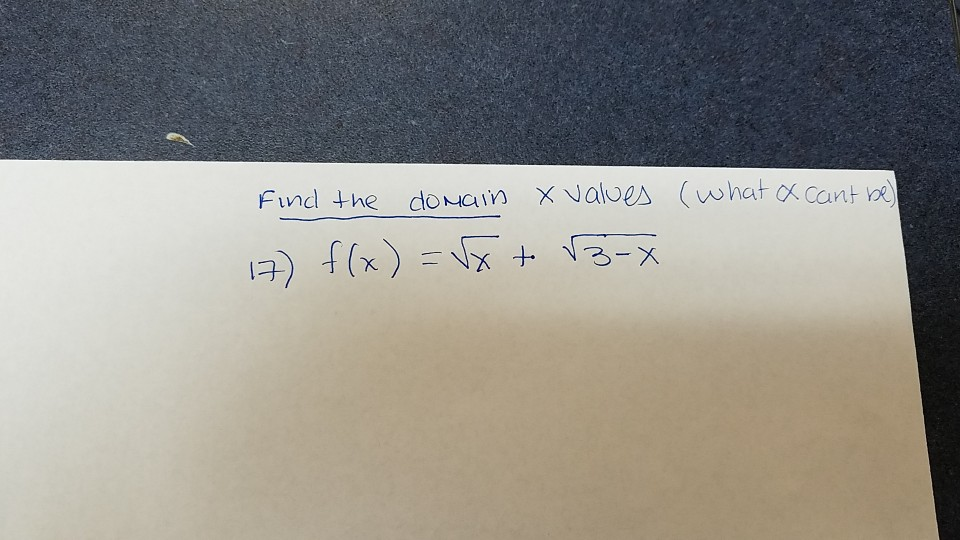 Find the domain x values (what x cant be)
17) f(x) = √x + √3-x